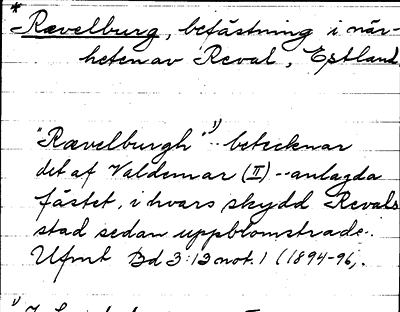 * Rævelburg, befästning i när-
heten av Reval, Estland
"Rævelburgh" 1) .. betecknar
det af Valdemar (II) -- anlagda
fästet, i hvars skydd Revals
stad sedan uppblomstrade.
Ufmt Bd 3:12 not. 1 (1894-96).
1)